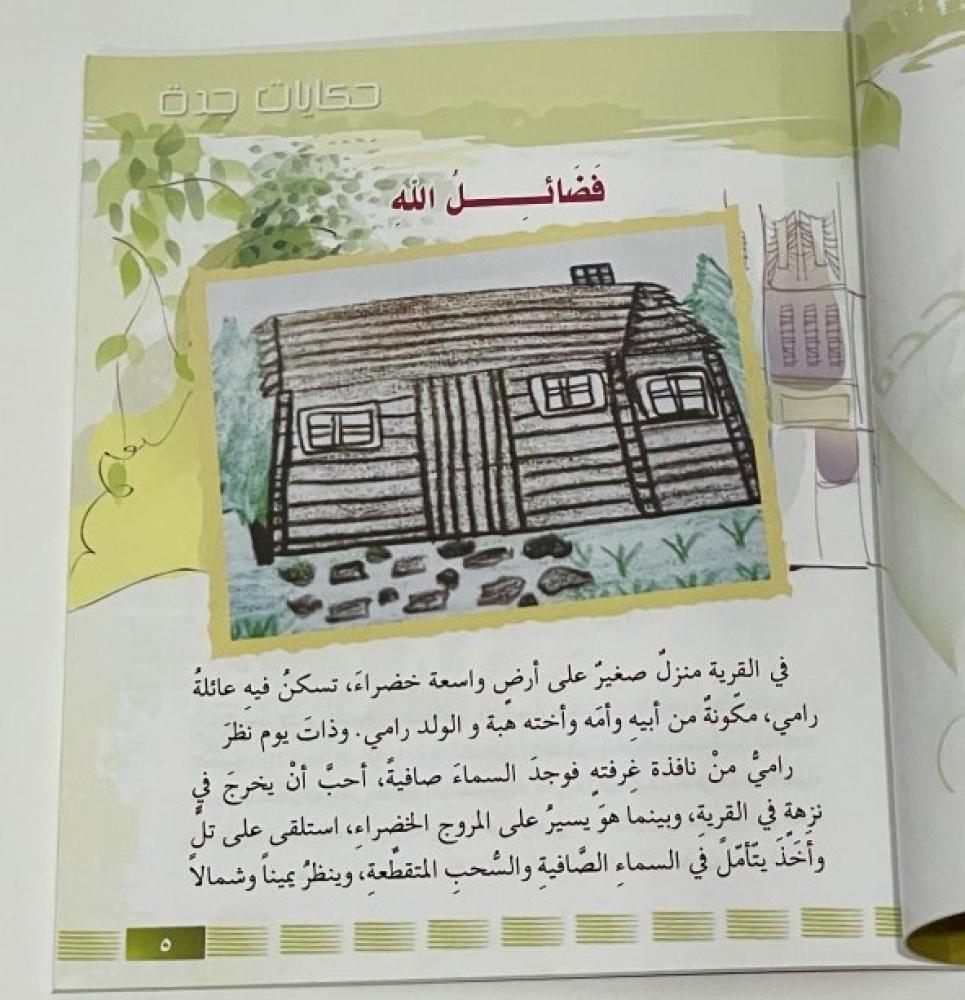 حكايات جدة
فَضَائِلُ اللّهِ
في القرية منزلٌ صغيرٌ على أرضٍ واسعة خضراءَ، تسكنُ فيهِ عائلةُ
رامي، مكّونةٌ من أبيهِ وأمَه وأخته هبة و الولد رامي. وذاتَ يوم نظرَ
راميُّ منْ نافذة غرفتهِ فوجدَ السماءَ صافيةً، أحبَّ أنْ يخرجَ في
نزهةٍ في القريةِ، وبينما هوَ يسيرُ على المروج الخضراءِ، استلقى على تلٍّ
وأخَذَ يتَأمّلُ في السماءِ الصَّافيةِ والسُّحبِ المتقطّعةِ، وينظرُ يميناً وشمالاً
٥